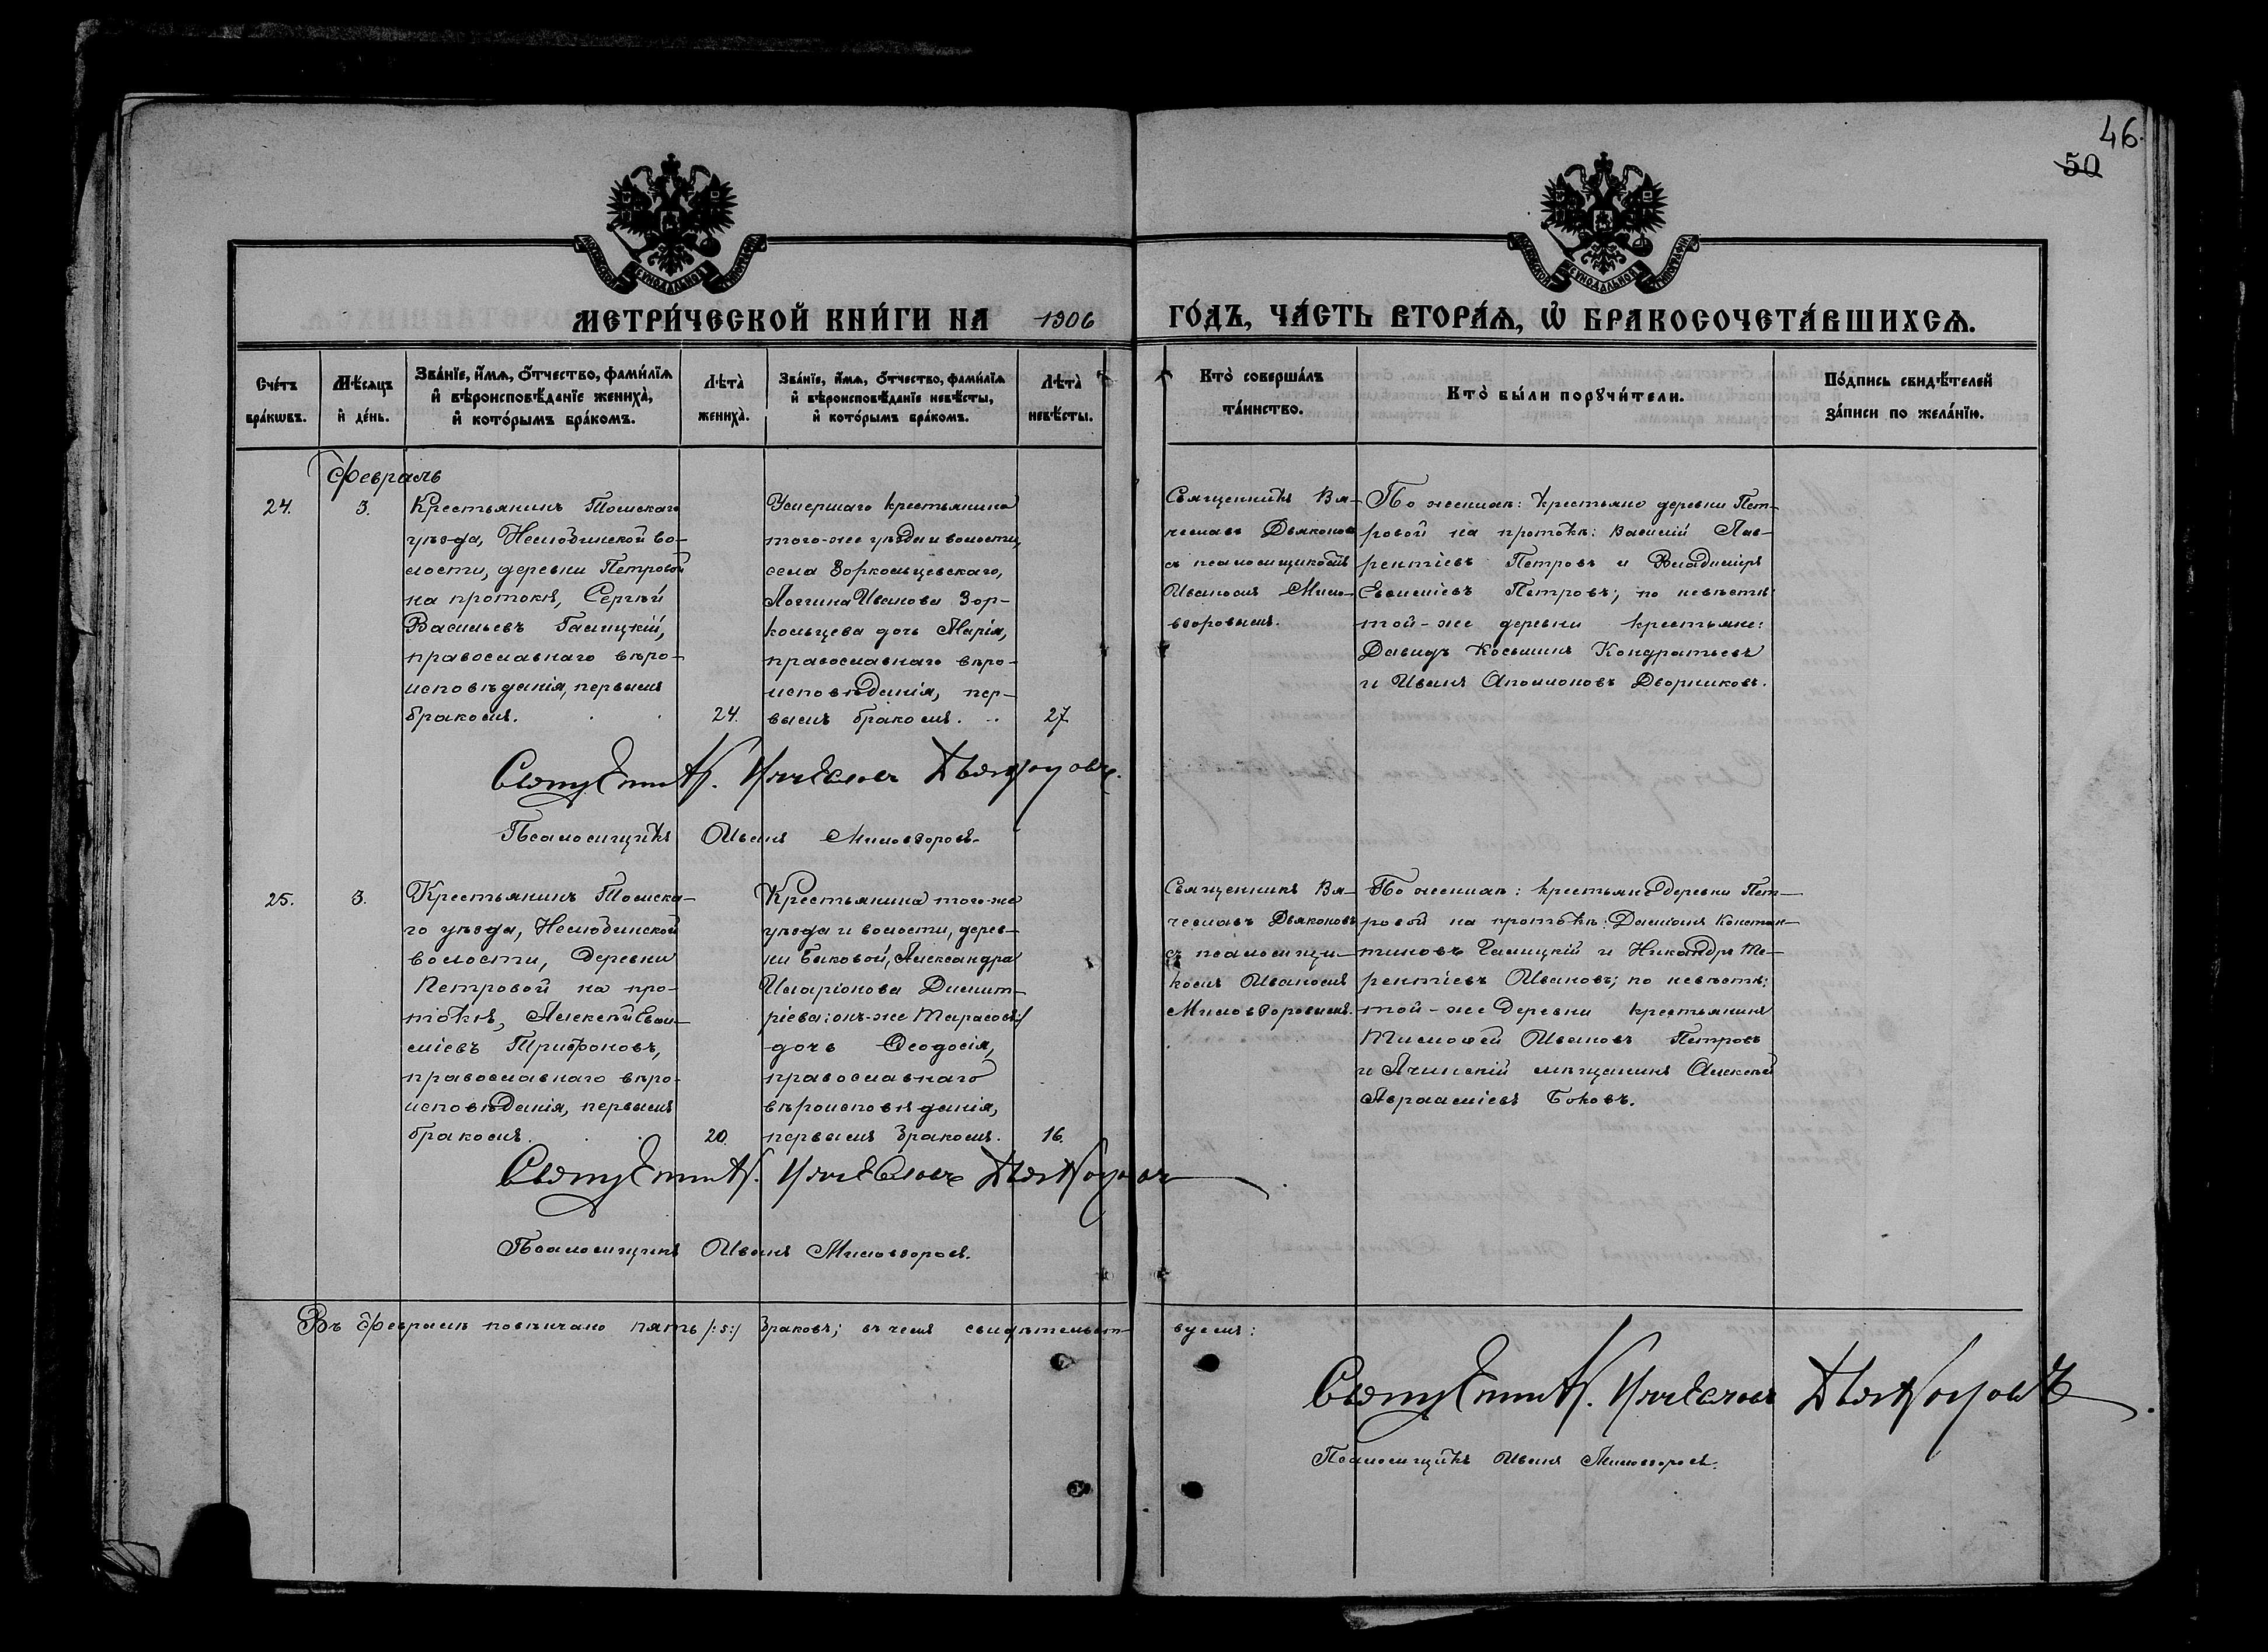 46.
50
МЕТРИ́ЧЕСКОЙ КНИ́ГИ НА 1906
ГО́ДЪ, ЧА́СТЬ ВТОРА́Ѧ, Ѡ҆ БРАКОСОЧЕТА́ВШИХСѦ.
Сче́тъ бра́кѡвъ.
Мѣ́сѧцъ и҆ де́нь.
Зва́нїе, и҆́мѧ, ѻ҆́тчество, фами́лїѧ
и҆ вѣроисповѣ́данїе жениха̀,
и҆ кото́рымъ бра́комъ.
Лѣта̀ жениха̀.
Зва́нїе, и҆́мѧ, ѻ҆́тчество, фами́лїѧ
и҆ вѣроисповѣ́данїе невѣ́сты,
и҆ кото́рымъ бра́комъ.
Лѣта̀ невѣ́сты.
Кто̀ соверша́лъ
та́инство.
Кто̀ бы́ли порꙋчи́тели.
По́дпись свидѣ́телей
за́писи по жела́нїю.
Февраль
24.
3.
Крестьянинъ Томскаго
уѣзда, Нелюбинской во-
лости, деревни Петровой
на протокѣ, Сергѣй
Васильевъ Галицкій,
православнаго вѣро-
исповѣданія, первымъ
бракомъ.
24.
Умершаго крестьянина
того-же уѣзда и волости,
села Зоркольцевскаго,
Логгина Иванова Зор-
кольцева дочь Марія,
православнаго вѣро-
исповѣданія, пер-
вымъ бракомъ.
27
Священникъ Вя-
чеславъ Дьяконовъ
съ псаломщикомъ
Иваномъ Мило-
взоровымъ.
По женихѣ: крестьяне деревни Пет-
ровой на протокѣ: Василій Лав-
рентіевъ Петровъ и Владиміръ
Евѳиміевъ Петровъ; по невѣстѣ:
той-же деревни крестьяне:
Давидъ Косьминъ Кондратьевъ
и Иванъ Аполлоновъ Дворниковъ.
Священникъ Вячеславъ Дьяконовъ.
Псаломщикъ Иванъ Миловзоровъ.
25.
3.
Крестьянинъ Томска-
го уѣзда, Нелюбинской
волости, деревни
Петровой на про-
токѣ, Алексѣй Евѳи-
міевъ Трифоновъ,
православнаго вѣро-
исповѣданія, первымъ
бракомъ.
20.
Крестьянина того-же
уѣзда и волости, дерев-
ни Быковой, Александра
Иларіонова Димит-
ріева /:онъ-же Тарасовъ:/
дочь Ѳеодосія,
православнаго
вѣроисповѣданія,
первымъ бракомъ.
16.
Священникъ Вя-
чеславъ Дьяконовъ
съ псаломщи-
комъ Иваномъ
Миловзоровымъ.
По женихѣ: крестьяне деревни Пет-
ровой на протокѣ: Даміанъ Констан-
тиновъ Галицкій и Никандръ Те-
рентіевъ Ивановъ; по невѣстѣ:
той-же деревни крестьянинъ
Тимоѳей Ивановъ Петровъ
и Ачинскій мѣщанинъ Алексѣй
Авраамiевъ Боковъ.
Священникъ Вячеславъ Дьяконовъ
Псаломщикъ Иванъ Миловзоровъ.
Въ Февралѣ повѣнчано пять /:5:/ браковъ; въ чемъ свидѣтельст-
вуемъ:
Священникъ Вячеславъ Дьяконовъ.
Псаломщикъ Иванъ Миловзоровъ.